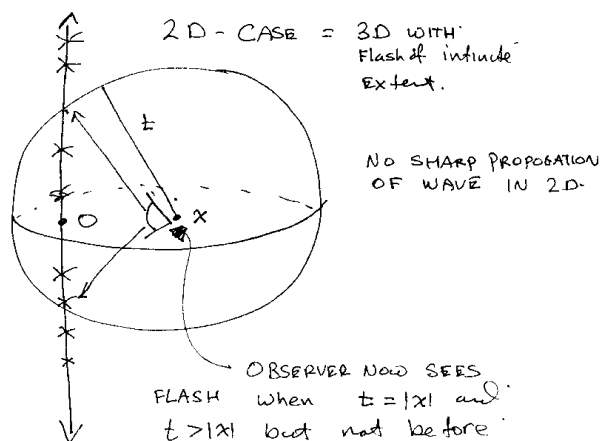 2D - CASE = 3D WITH
Flash of infinite
Extent.
t
NO SHARP PROPOGATION
OF WAVE IN 2D.
O
x
OBSERVER NOW SEES
FLASH when t = |x| and
t > |x| but not before